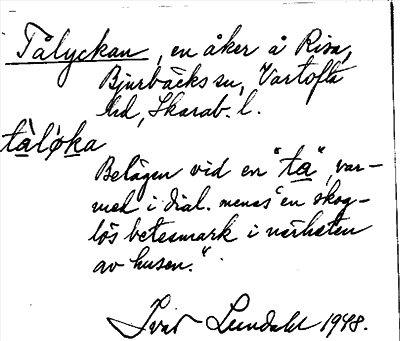 Tålyckan, en åker å Risa,
Bjurbäcks sn, Vartofta
hd, Skarab. l.
tàløka
Belägen vid en "ta", var-
med i dial. menas "en skog-
lös betesmark i närheten
av husen."
Ivar Lundahl 1948.